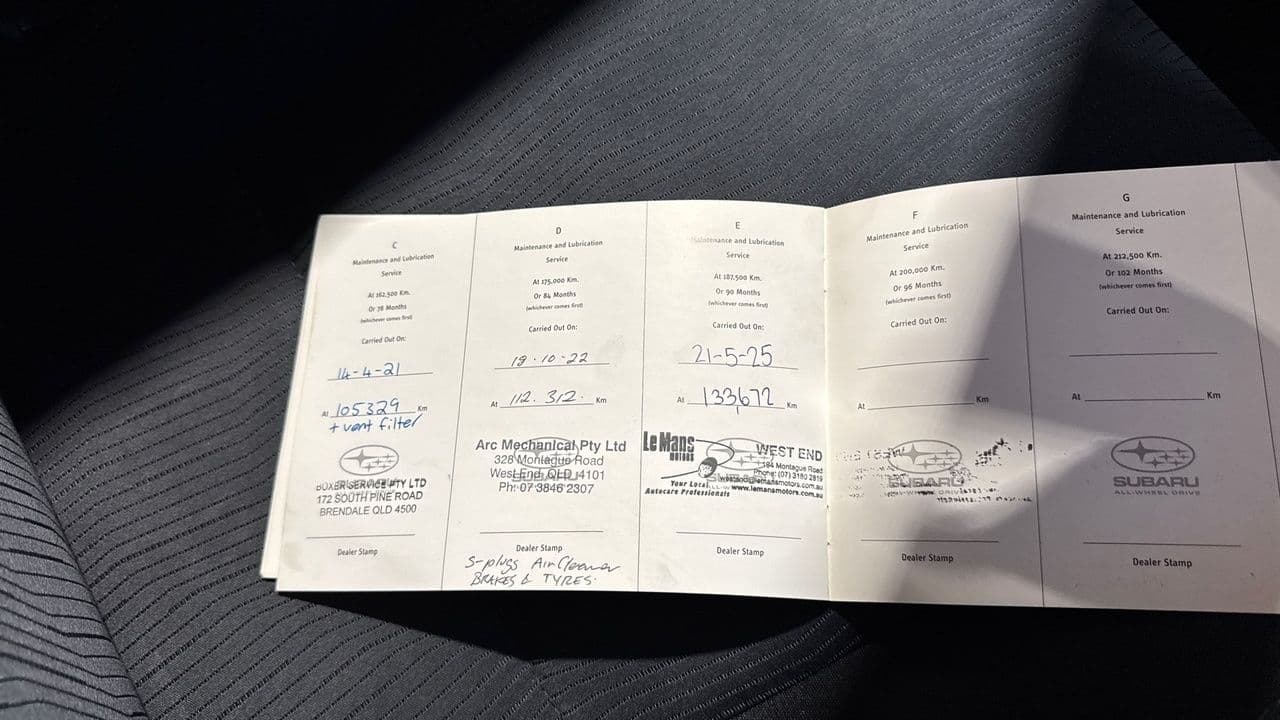 C
Maintenance and Lubrication
Service
At 162,500 Km.
Or 78 Months
(whichever comes first)
Carried Out On:
14-4-21
At 105329 Km
+ vent filter
BOXER SERVICE PTY LTD
172 SOUTH PINE ROAD
BRENDALE QLD 4500
Dealer Stamp
D
Maintenance and Lubrication
Service
At 175,000 Km.
Or 84 Months
(whichever comes first)
Carried Out On:
19·10-22
At 112.312. Km
Arc Mechanical Pty Ltd
328 Montague Road
West End QLD 4101
Ph: 07 3846 2307
Dealer Stamp
S-plugs Air Cleaner
BRAKES & TYRES.
E
Maintenance and Lubrication
Service
At 187,500 Km.
Or 90 Months
(whichever comes first)
Carried Out On:
21-5-25
At 133,672 Km
Le Mans
WEST END
Montague Road
Phone: (07) 3180 2819
westend@lemansmotors.com.au
www.lemansmotors.com.au
Your Local
Autocare Professionals
Dealer Stamp
F
Maintenance and Lubrication
Service
At 200,000 Km.
Or 96 Months
(whichever comes first)
Carried Out On:
At Km
SUBARU
Dealer Stamp
G
Maintenance and Lubrication
Service
At 212,500 Km.
Or 102 Months
(whichever comes first)
Carried Out On:
At Km
SUBARU
ALL-WHEEL DRIVE
Dealer Stamp